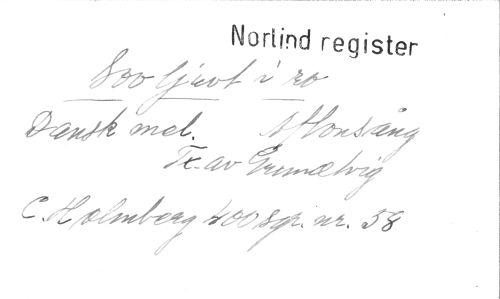 Norlind register
Sov ljuvt i ro
Dansk mel. Aftonsång
Tx. av Grundtvig
C. Holmberg 400 sgr. nr. 58